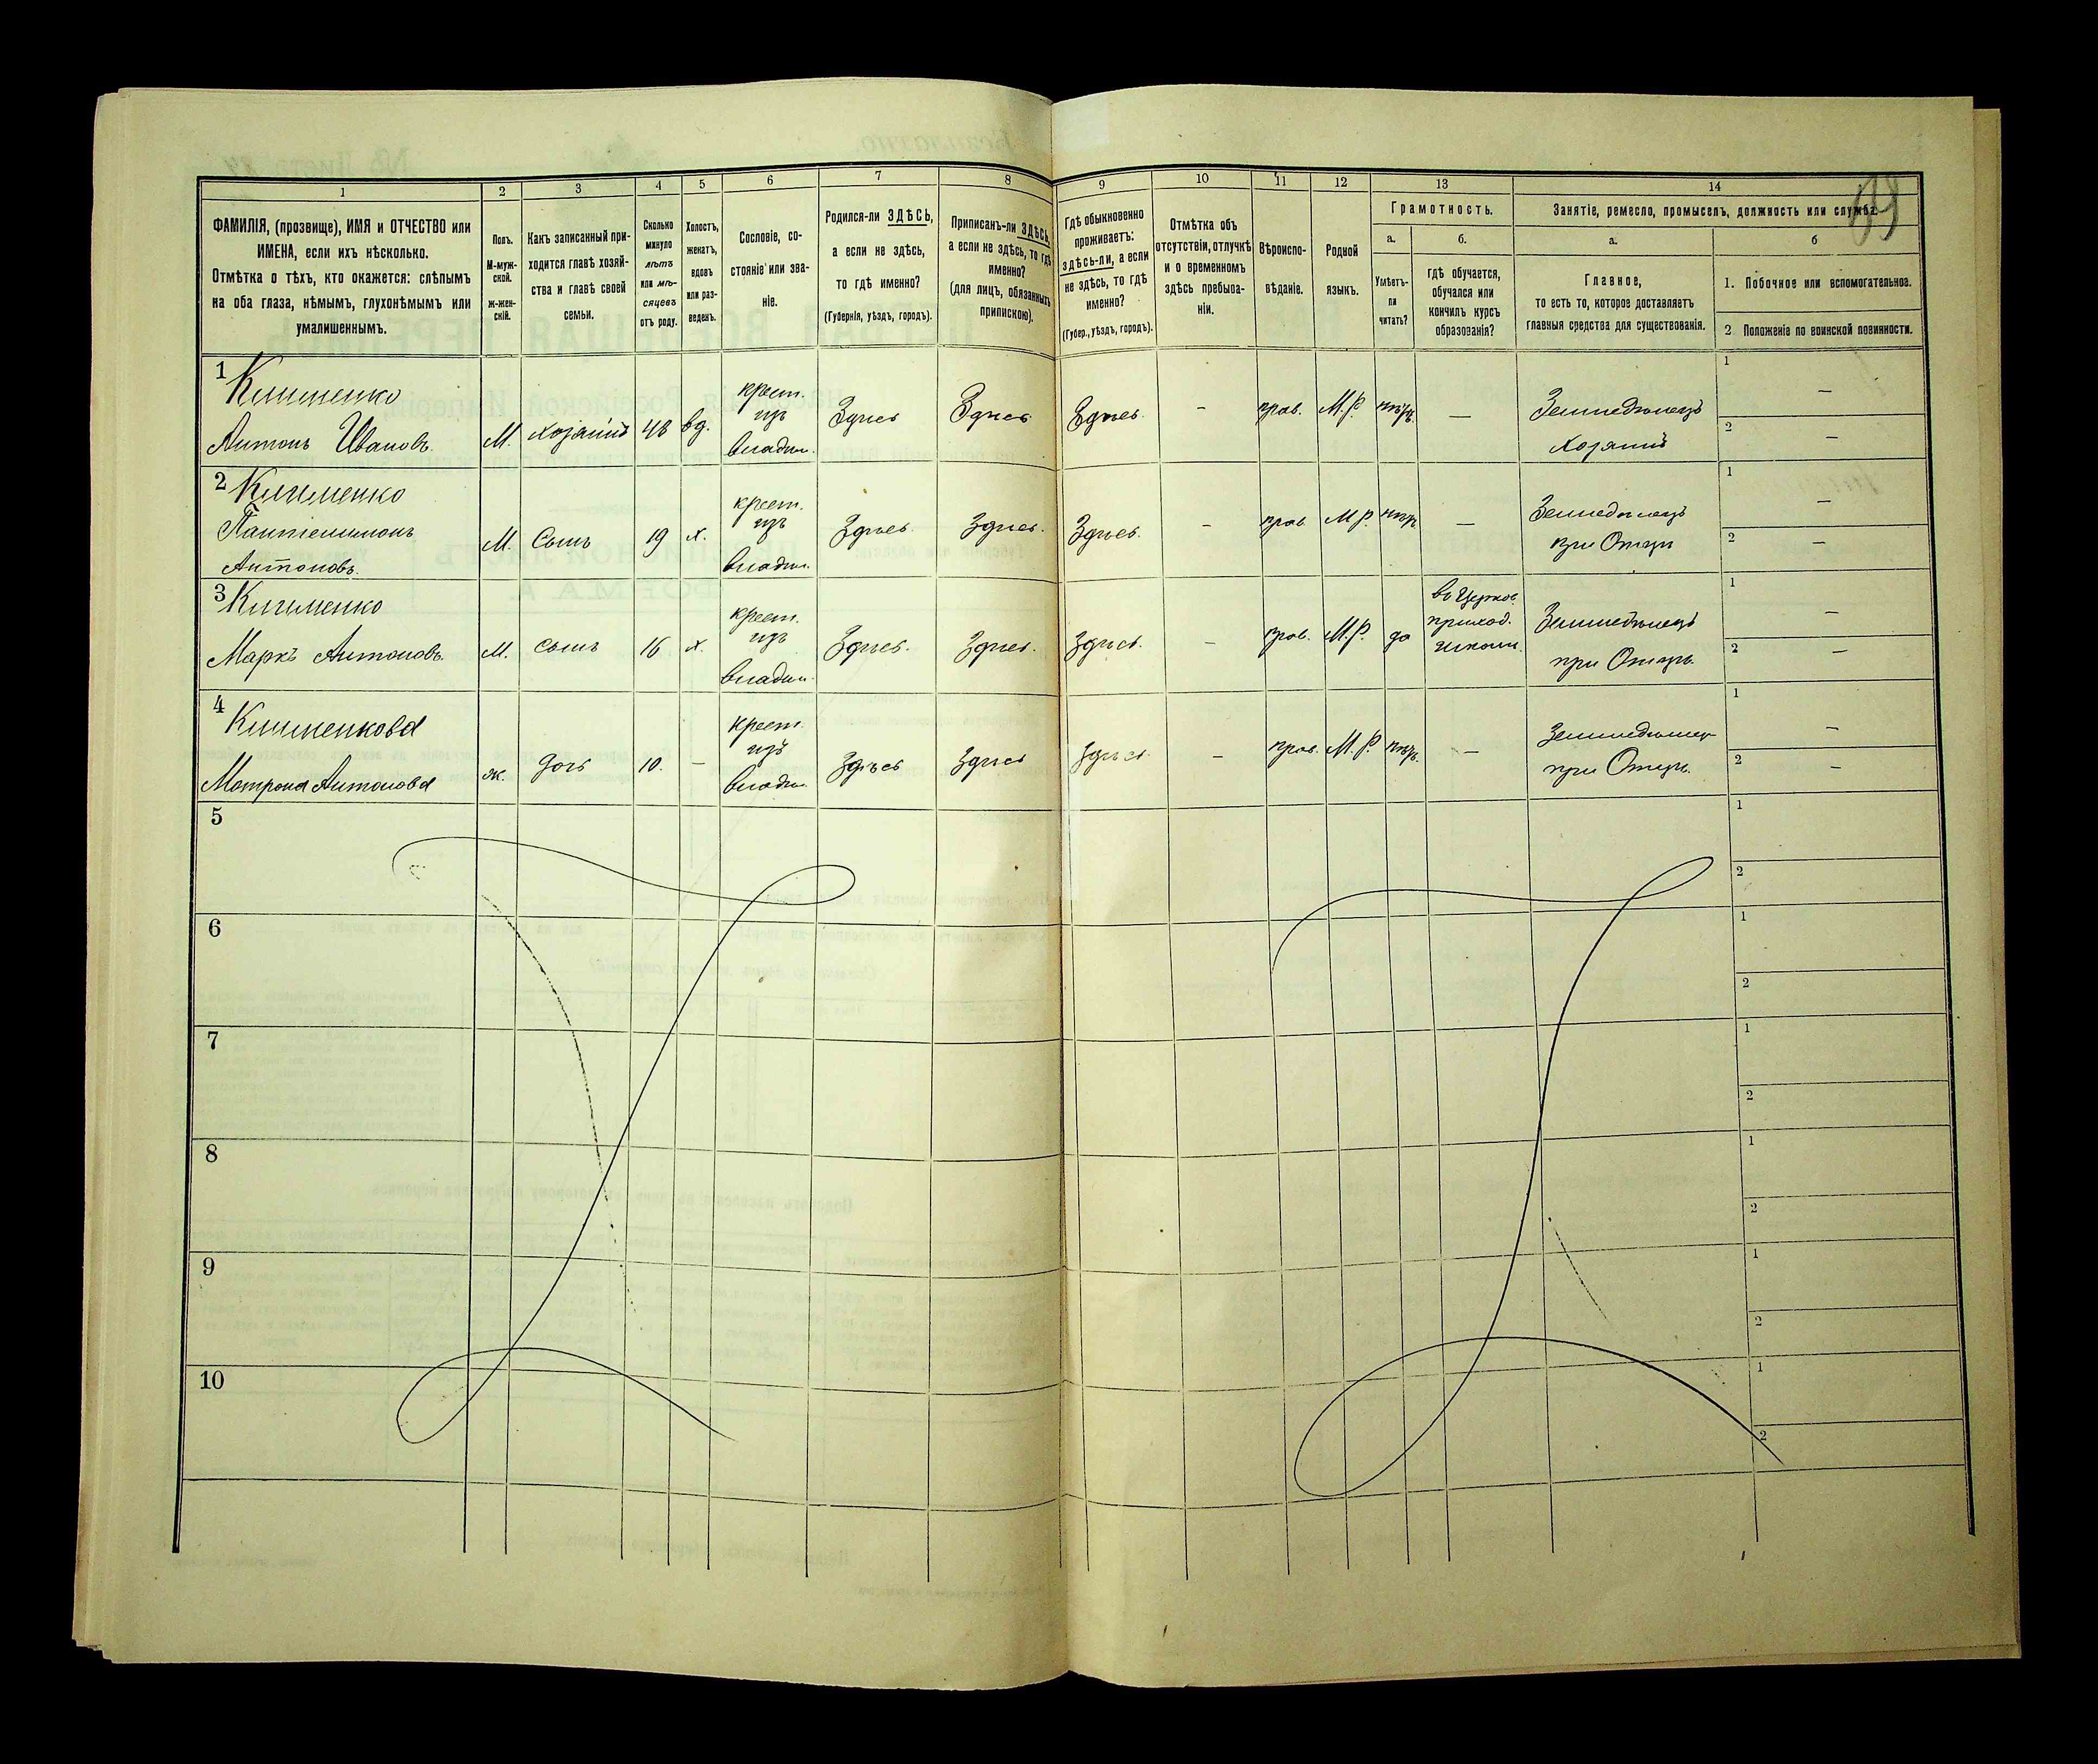 89
1
2
3
4
5
6
7
8
9
10
11
12
13
14
ФАМИЛІЯ, (прозвище), ИМЯ и ОТЧЕСТВО или
ИМЕНА, если ихъ нѣсколько.
Отмѣтка о тѣхъ, кто окажется: слѣпымъ
на оба глаза, нѣмымъ, глухонѣмымъ или
умалишеннымъ.
Полъ.
М-муж-
ской.
ж-жен-
скій.
Какъ записанный при-
ходится главѣ хозяй-
ства и главѣ своей
семьи.
Сколько
минуло
лѣтъ
или мѣ-
сяцевъ
отъ роду.
Холостъ,
женатъ,
вдовъ
или раз-
веденъ.
Сословіе, со-
стояніе или зва-
ніе.
Родился-ли ЗДѢСЬ,
а если не здѣсь,
то гдѣ именно?
(Губернія, уѣздъ, городъ).
Приписанъ-ли ЗДѢСЬ,
а если не здѣсь, то гдѣ
именно?
(для лицъ, обязанныхъ
припискою).
Гдѣ обыкновенно
проживаетъ:
здѣсь-ли, а если
не здѣсь, то гдѣ
именно?
(Губер., уѣздъ, городъ).
Отмѣтка объ
отсутствіи, отлучкѣ
и о временномъ
здѣсь пребыва-
ніи.
Вѣроиспо-
вѣданіе.
Родной
языкъ.
Грамотность.
а.
Умѣетъ-
ли
читать?
б.
гдѣ обучается,
обучался или
кончилъ курсъ
образованія?
Занятіе, ремесло, промыселъ, должность или служба.
а.
Главное,
то есть то, которое доставляетъ
главныя средства для существованія.
б
1. Побочное или вспомогательное.
2 Положеніе по воинской повинности.
1 Клименко
Антонъ Ивановъ.
М. хозяинъ 48 вд.
крест.
изъ
владѣл.
Здѣсь Здѣсь Здѣсь. - прав. М.Р. нѣтъ. —
Земледѣлецъ
хозяинъ
1 —
2 —
2 Клименко
Пантелимонъ
Антоновъ.
М. Сынъ 19 х.
крест.
изъ
владѣл.
Здѣсь. Здѣсь. Здѣсь. - прав. М.Р. нѣтъ. —
Земледѣлецъ
при Отцѣ
1 —
2 —
3 Клименко
Маркъ Антоновъ.
М. сынъ 16 х.
крест.
изъ
владѣл.
Здѣсь. Здѣсь. Здѣсь. - прав. М.Р. да
въ Церков.
приход.
школѣ
Земледѣлецъ
при Отцѣ.
1 —
2 —
4 Клименкова
Матрона Антонова
ж. дочь 10. —
крест.
изъ
владѣл.
Здѣсь Здѣсь Здѣсь. - прав. М.Р. нѣтъ. —
при Отцѣ.
1 —
2 —
5
1
2
6
1
2
7
1
2
8
1
2
9
1
2
10
1
2